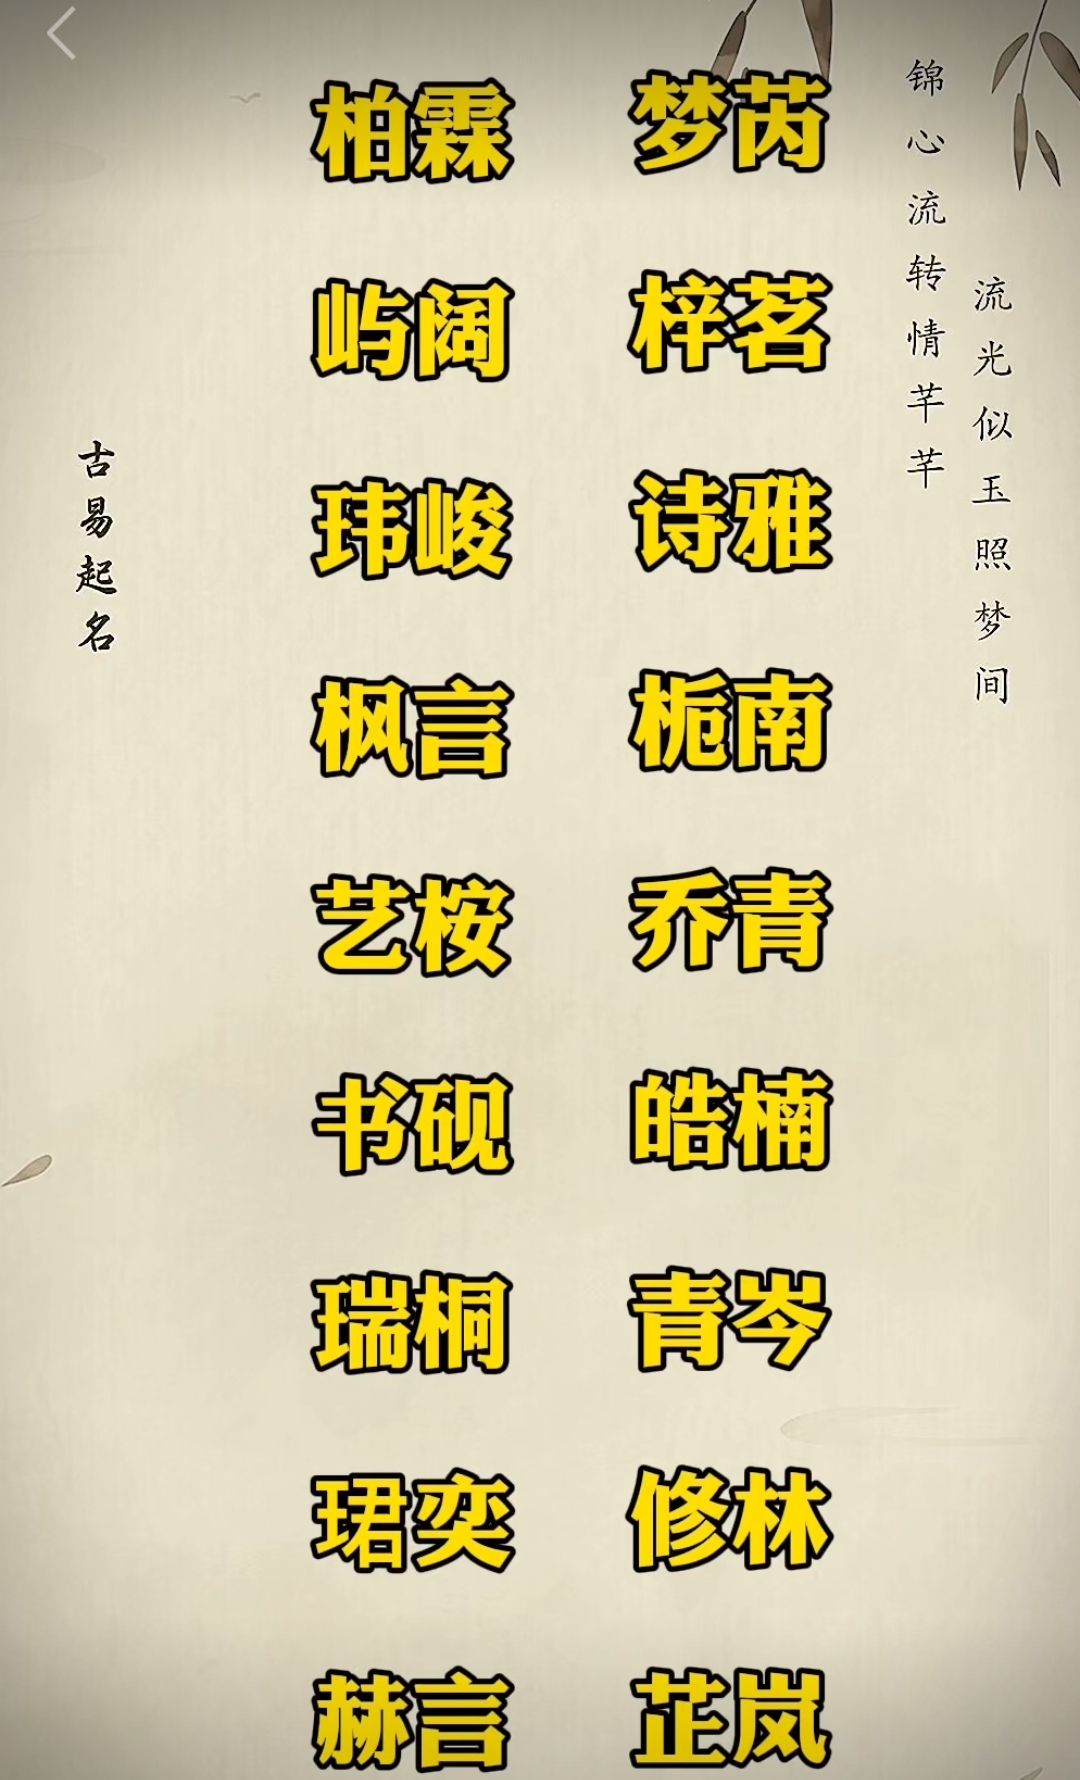 柏霖 梦芮
屿阔 梓茗
玮峻 诗雅
枫言 栀南
艺桉 乔青
书砚 皓楠
瑞桐 青岑
珺奕 修林
赫言 芷岚
锦心流转情芊芊
流光似玉照梦间
古易起名